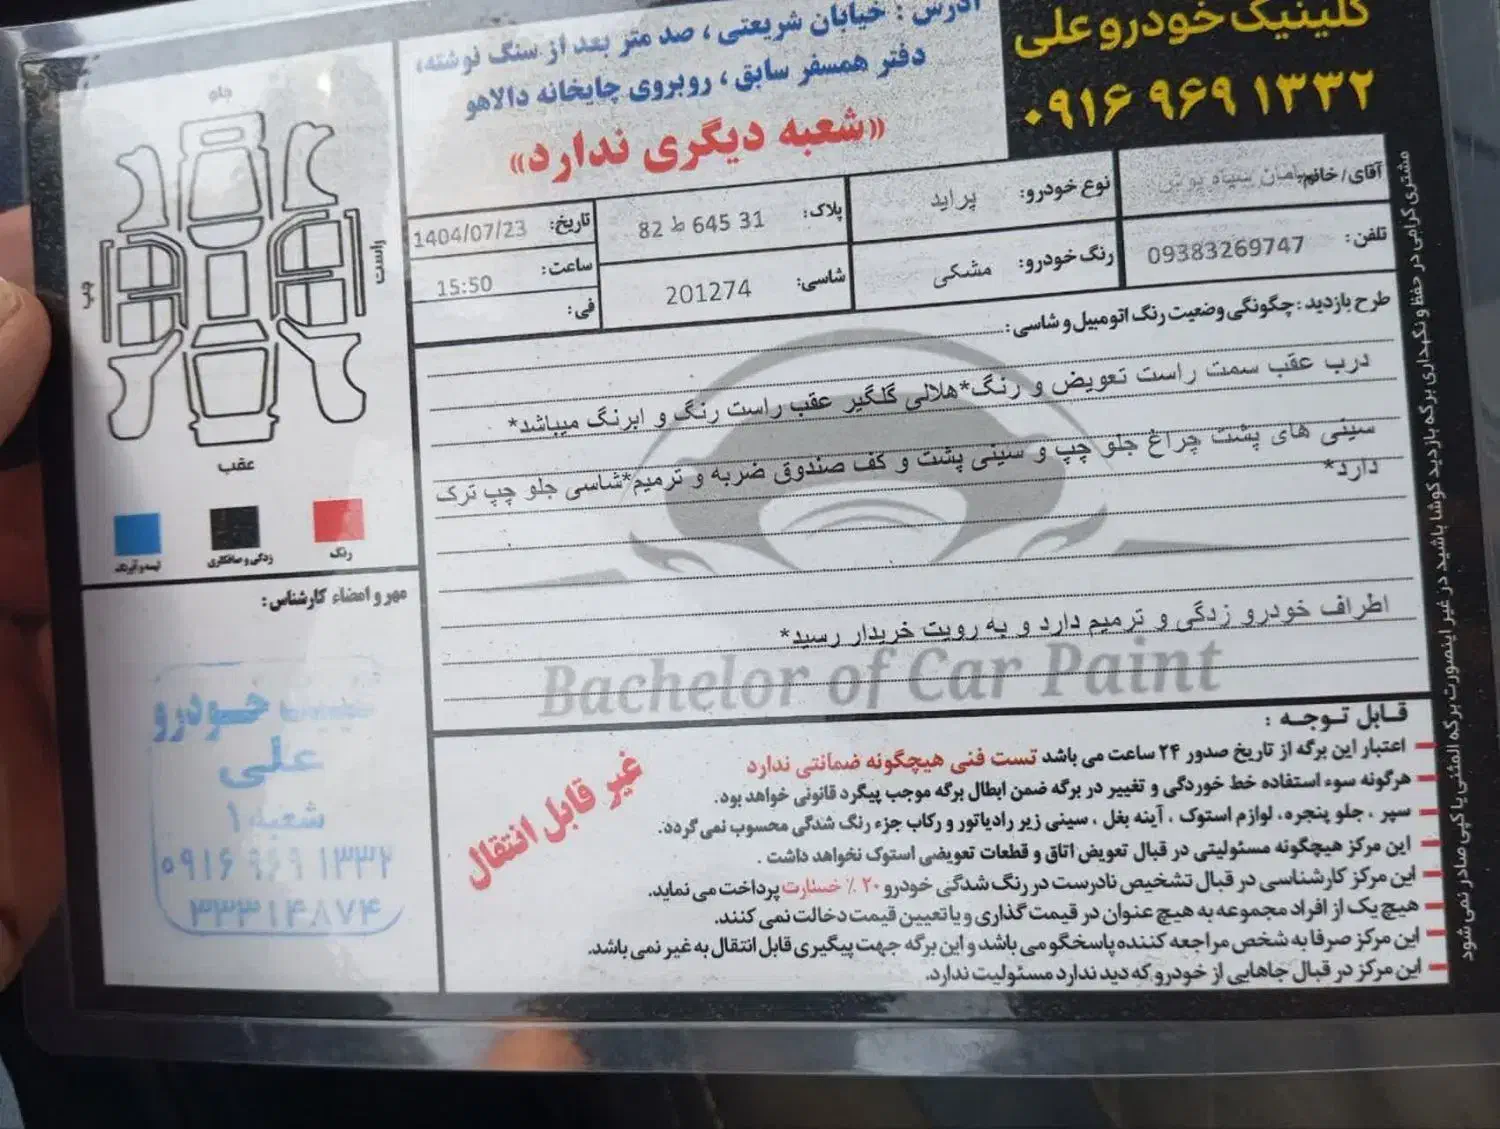 کلینیک خودرو علی
۰۹۱۶ ۹۶۹ ۱۳۳۲
آدرس : خیابان شریعتی ، صد متر بعد از سنگ نوشته،
دفتر همسفر سابق ، روبروی چاپخانه دالاهو
«شعبه دیگری ندارد»
آقای/ خانم:
نوع خودرو: پراید
پلاک: 82 ط 645 31
تاریخ: 1404/07/23
تلفن: 09383269747
رنگ خودرو: مشکی
شاسی: 201274
ساعت: 15:50
فی:
طرح بازدید : چگونگی وضعیت رنگ اتومبیل و شاسی :
درب عقب سمت راست تعویض و رنگ*هلالی گلگیر عقب راست رنگ و ابرنگ میباشد*
سینی های پشت چراغ جلو چپ و سینی پشت و کف صندوق ضربه و ترمیم*شاسی جلو چپ ترک
دارد*
اطراف خودرو زدگی و ترمیم دارد و به رویت خریدار رسید*
Bachelor of Car Paint
قابل توجه :
اعتبار این برگه از تاریخ صدور ۲۴ ساعت می باشد تست فنی هیچگونه ضمانتی ندارد
هرگونه سوء استفاده خط خوردگی و تغییر در برگه ضمن ابطال برگه موجب پیگرد قانونی خواهد بود.
سپر ، جلو پنجره، لوازم استوک ، آینه بغل ، سینی زیر رادیاتور و رکاب جزء رنگ شدگی محسوب نمی گردد.
این مرکز هیچگونه مسئولیتی در قبال تعویض اتاق و قطعات تعویضی استوک نخواهد داشت .
این مرکز کارشناسی در قبال تشخیص نادرست در رنگ شدگی خودرو ۲۰ ٪ خسارت پرداخت می نماید.
هیچ یک از افراد مجموعه به هیچ عنوان در قیمت گذاری و یا تعیین قیمت دخالت نمی کنند.
این مرکز صرفا به شخص مراجعه کننده پاسخگو می باشد و این برگه جهت پیگیری قابل انتقال به غیر نمی باشد.
این مرکز در قبال جاهایی از خودرو که دید ندارد مسئولیت ندارد.
غیر قابل انتقال
مشتری گرامی در حفظ و نگهداری برگه بازدید کوشا باشید در غیر اینصورت برگه المثنی یا کپی صادر نمی شود
جلو
راست
چپ
عقب
رنگ
زدگی و صافکاری
لیسه و آبرنگ
مهر و امضاء کارشناس :
خودرو
علی
شعبه ۱
۰۹۱۶ ۹۶۹ ۱۳۳۲
۳۳۳۱۴۸۷۴